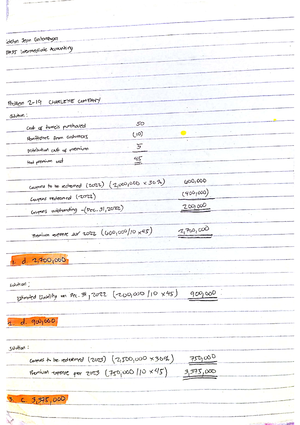 Intermediate Accounting
Problem 2-19 CHARLENE COMPANY
Solution:
Cost of towels purchased 50
Remittance from customers (10)
Distribution cost of premium 5
Net premium cost 45
Coupons to be redeemed (2022) (2,000,000 x 30%) 600,000
Coupons redeemed (2022) (400,000)
Coupons outstanding - (Dec. 31, 2022) 200,000
Premium expense for 2022 (600,000/10 x 45) 2,700,000
d. 2,700,000
Solution:
Estimated liability on Dec. 31, 2022 (200,000/10 x 45) 900,000
d. 900,000
Solution:
Coupons to be redeemed (2023) (2,500,000 x 30%) 750,000
Premium expense for 2023 (750,000/10 x 45) 3,375,000
c. 3,375,000